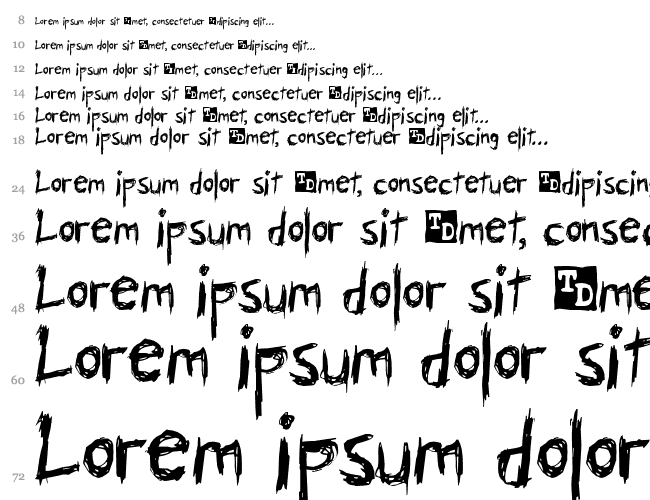 8 Lorem ipsum dolor sit TDmet, consectetuer TDdipiscing elit...
10 Lorem ipsum dolor sit TDmet, consectetuer TDdipiscing elit...
12 Lorem ipsum dolor sit TDmet, consectetuer TDdipiscing elit...
14 Lorem ipsum dolor sit TDmet, consectetuer TDdipiscing elit...
16 Lorem ipsum dolor sit TDmet, consectetuer TDdipiscing elit...
18 Lorem ipsum dolor sit TDmet, consectetuer TDdipiscing elit...
24 Lorem ipsum dolor sit TDmet, consectetuer TDdipiscin
36 Lorem ipsum dolor sit TDmet, consec
48 Lorem ipsum dolor sit TDme
60 Lorem ipsum dolor sit
72 Lorem ipsum dolor